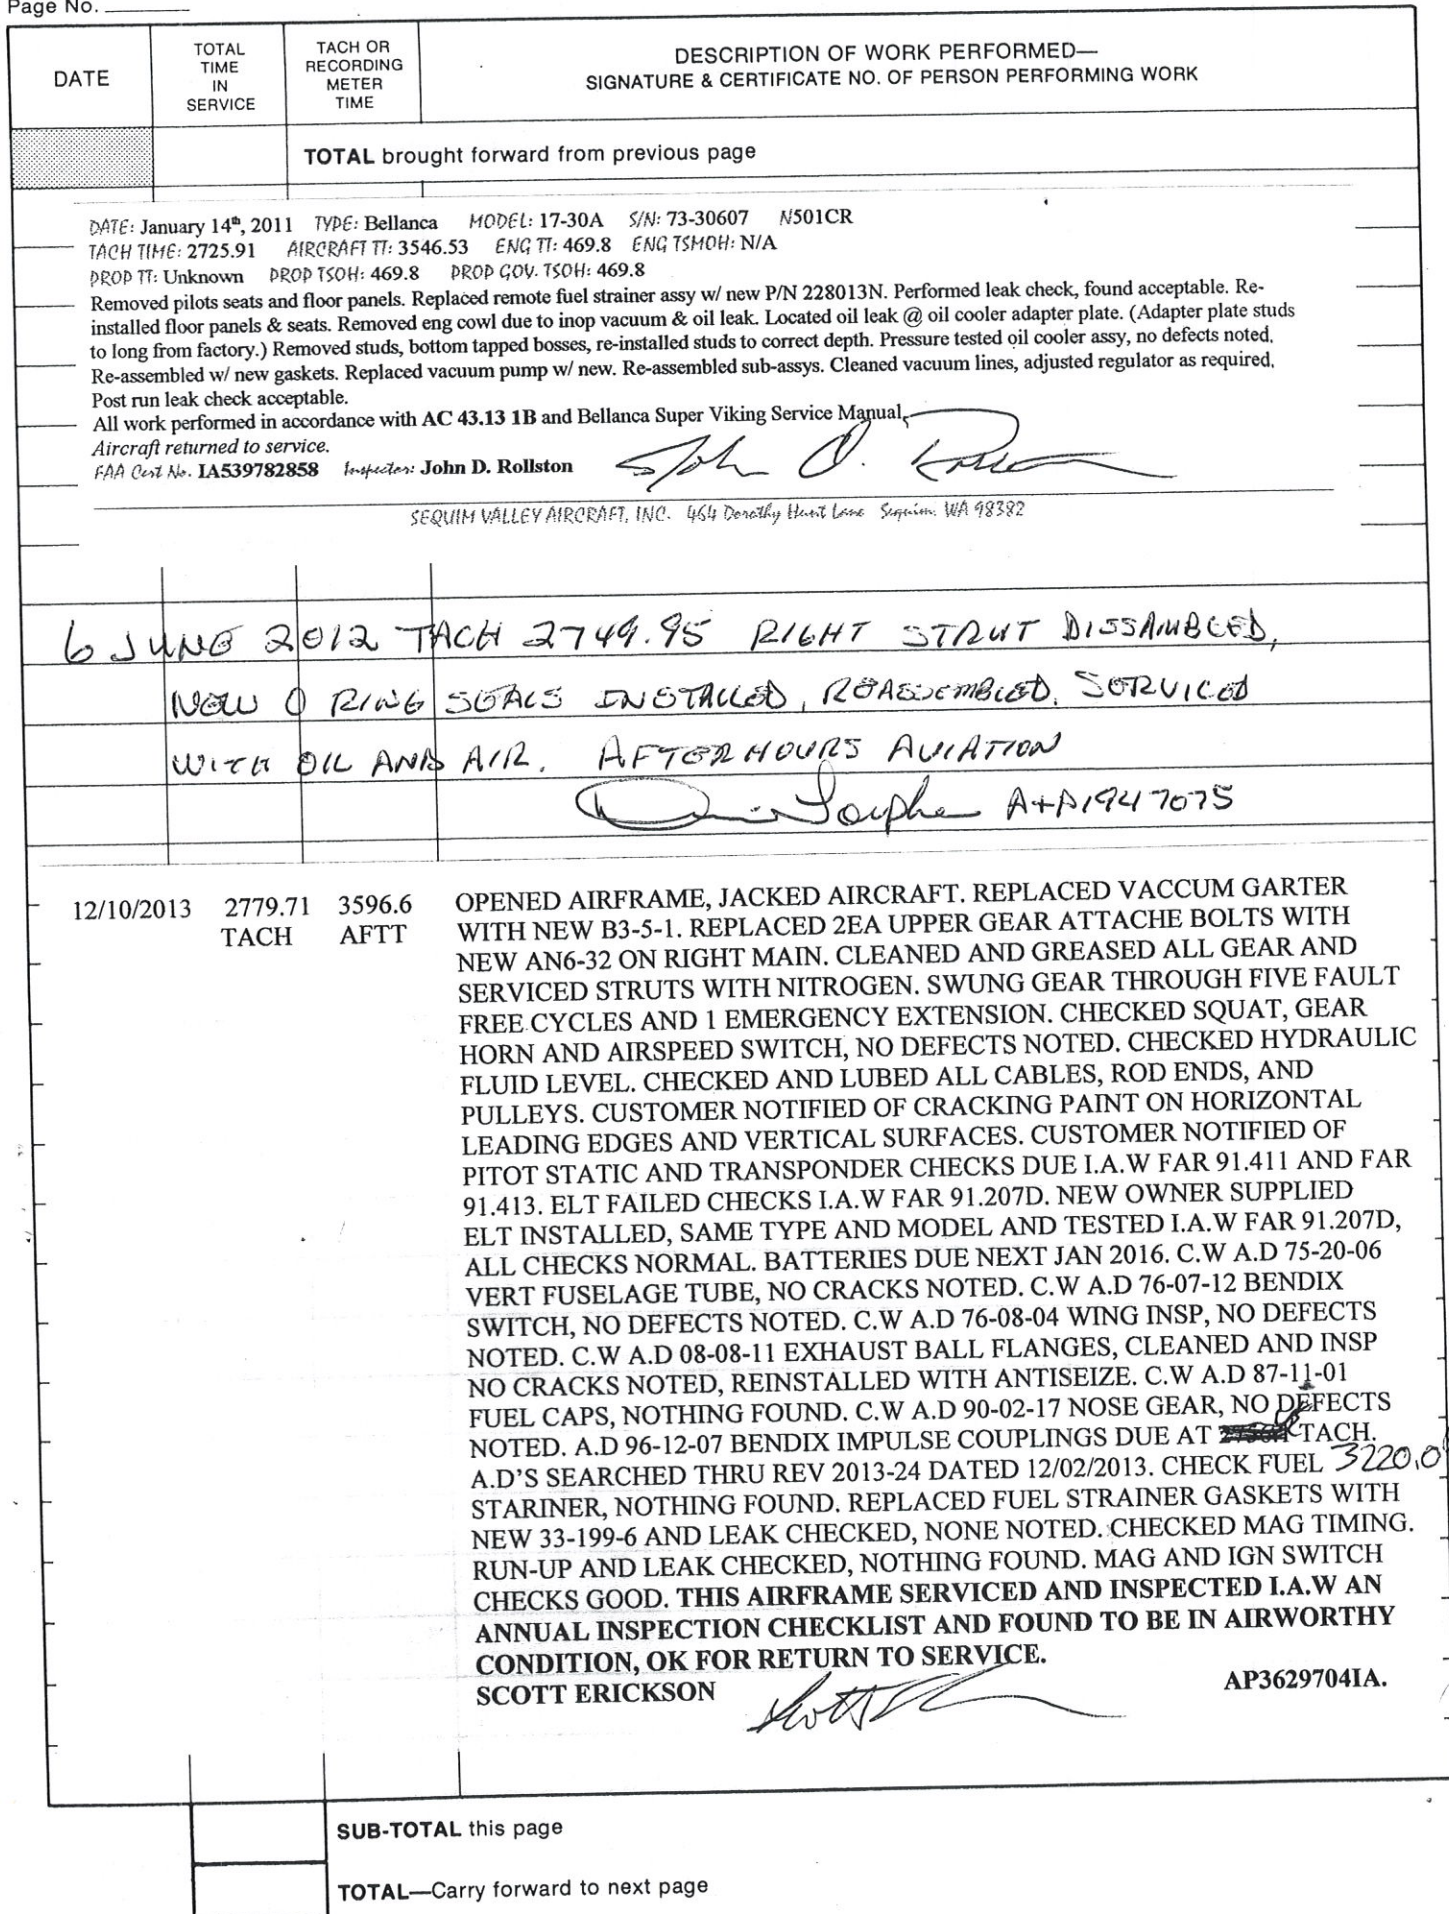 Page No.
DATE
TOTAL TIME IN SERVICE
TACH OR RECORDING METER TIME
DESCRIPTION OF WORK PERFORMED—
SIGNATURE & CERTIFICATE NO. OF PERSON PERFORMING WORK
TOTAL brought forward from previous page
DATE: January 14th, 2011 TYPE: Bellanca MODEL: 17-30A S/N: 73-30607 N501CR
TACH TIME: 2725.91 AIRCRAFT TT: 3546.53 ENG TT: 469.8 ENG TSMOH: N/A
PROP TT: Unknown PROP TSOH: 469.8 PROP GOV. TSOH: 469.8
Removed pilots seats and floor panels. Replaced remote fuel strainer assy w/ new P/N 228013N. Performed leak check, found acceptable. Re-
installed floor panels & seats. Removed eng cowl due to inop vacuum & oil leak. Located oil leak @ oil cooler adapter plate. (Adapter plate studs
to long from factory.) Removed studs, bottom tapped bosses, re-installed studs to correct depth. Pressure tested oil cooler assy, no defects noted.
Re-assembled w/ new gaskets. Replaced vacuum pump w/ new. Re-assembled sub-assys. Cleaned vacuum lines, adjusted regulator as required.
Post run leak check acceptable.
All work performed in accordance with AC 43.13 1B and Bellanca Super Viking Service Manual.
Aircraft returned to service.
FAA Cert No. IA539782858 Inspector: John D. Rollston
SEQUIM VALLEY AIRCRAFT, INC. 464 Dorothy Hunt Lane Sequim. WA 98382
6 JUNE 2012 TACH 2749.95 RIGHT STRUT DISSAMBLED,
NEW O RING SEALS INSTALLED, REASSEMBLED, SERVICED
WITH OIL AND AIR. AFTER HOURS AVIATION
A+P1947075
12/10/2013 2779.71 3596.6 OPENED AIRFRAME, JACKED AIRCRAFT. REPLACED VACCUM GARTER
TACH AFTT WITH NEW B3-5-1. REPLACED 2EA UPPER GEAR ATTACHE BOLTS WITH
NEW AN6-32 ON RIGHT MAIN. CLEANED AND GREASED ALL GEAR AND
SERVICED STRUTS WITH NITROGEN. SWUNG GEAR THROUGH FIVE FAULT
FREE CYCLES AND 1 EMERGENCY EXTENSION. CHECKED SQUAT, GEAR
HORN AND AIRSPEED SWITCH, NO DEFECTS NOTED. CHECKED HYDRAULIC
FLUID LEVEL. CHECKED AND LUBED ALL CABLES, ROD ENDS, AND
PULLEYS. CUSTOMER NOTIFIED OF CRACKING PAINT ON HORIZONTAL
LEADING EDGES AND VERTICAL SURFACES. CUSTOMER NOTIFIED OF
PITOT STATIC AND TRANSPONDER CHECKS DUE I.A.W FAR 91.411 AND FAR
91.413. ELT FAILED CHECKS I.A.W FAR 91.207D. NEW OWNER SUPPLIED
ELT INSTALLED, SAME TYPE AND MODEL AND TESTED I.A.W FAR 91.207D,
ALL CHECKS NORMAL. BATTERIES DUE NEXT JAN 2016. C.W A.D 75-20-06
VERT FUSELAGE TUBE, NO CRACKS NOTED. C.W A.D 76-07-12 BENDIX
SWITCH, NO DEFECTS NOTED. C.W A.D 76-08-04 WING INSP, NO DEFECTS
NOTED. C.W A.D 08-08-11 EXHAUST BALL FLANGES, CLEANED AND INSP
NO CRACKS NOTED, REINSTALLED WITH ANTISEIZE. C.W A.D 87-11-01
FUEL CAPS, NOTHING FOUND. C.W A.D 90-02-17 NOSE GEAR, NO DEFECTS
NOTED. A.D 96-12-07 BENDIX IMPULSE COUPLINGS DUE AT TACH.
A.D'S SEARCHED THRU REV 2013-24 DATED 12/02/2013. CHECK FUEL 3220.0
STARINER, NOTHING FOUND. REPLACED FUEL STRAINER GASKETS WITH
NEW 33-199-6 AND LEAK CHECKED, NONE NOTED. CHECKED MAG TIMING.
RUN-UP AND LEAK CHECKED, NOTHING FOUND. MAG AND IGN SWITCH
CHECKS GOOD. THIS AIRFRAME SERVICED AND INSPECTED I.A.W AN
ANNUAL INSPECTION CHECKLIST AND FOUND TO BE IN AIRWORTHY
CONDITION, OK FOR RETURN TO SERVICE.
SCOTT ERICKSON AP3629704IA.
SUB-TOTAL this page
TOTAL—Carry forward to next page